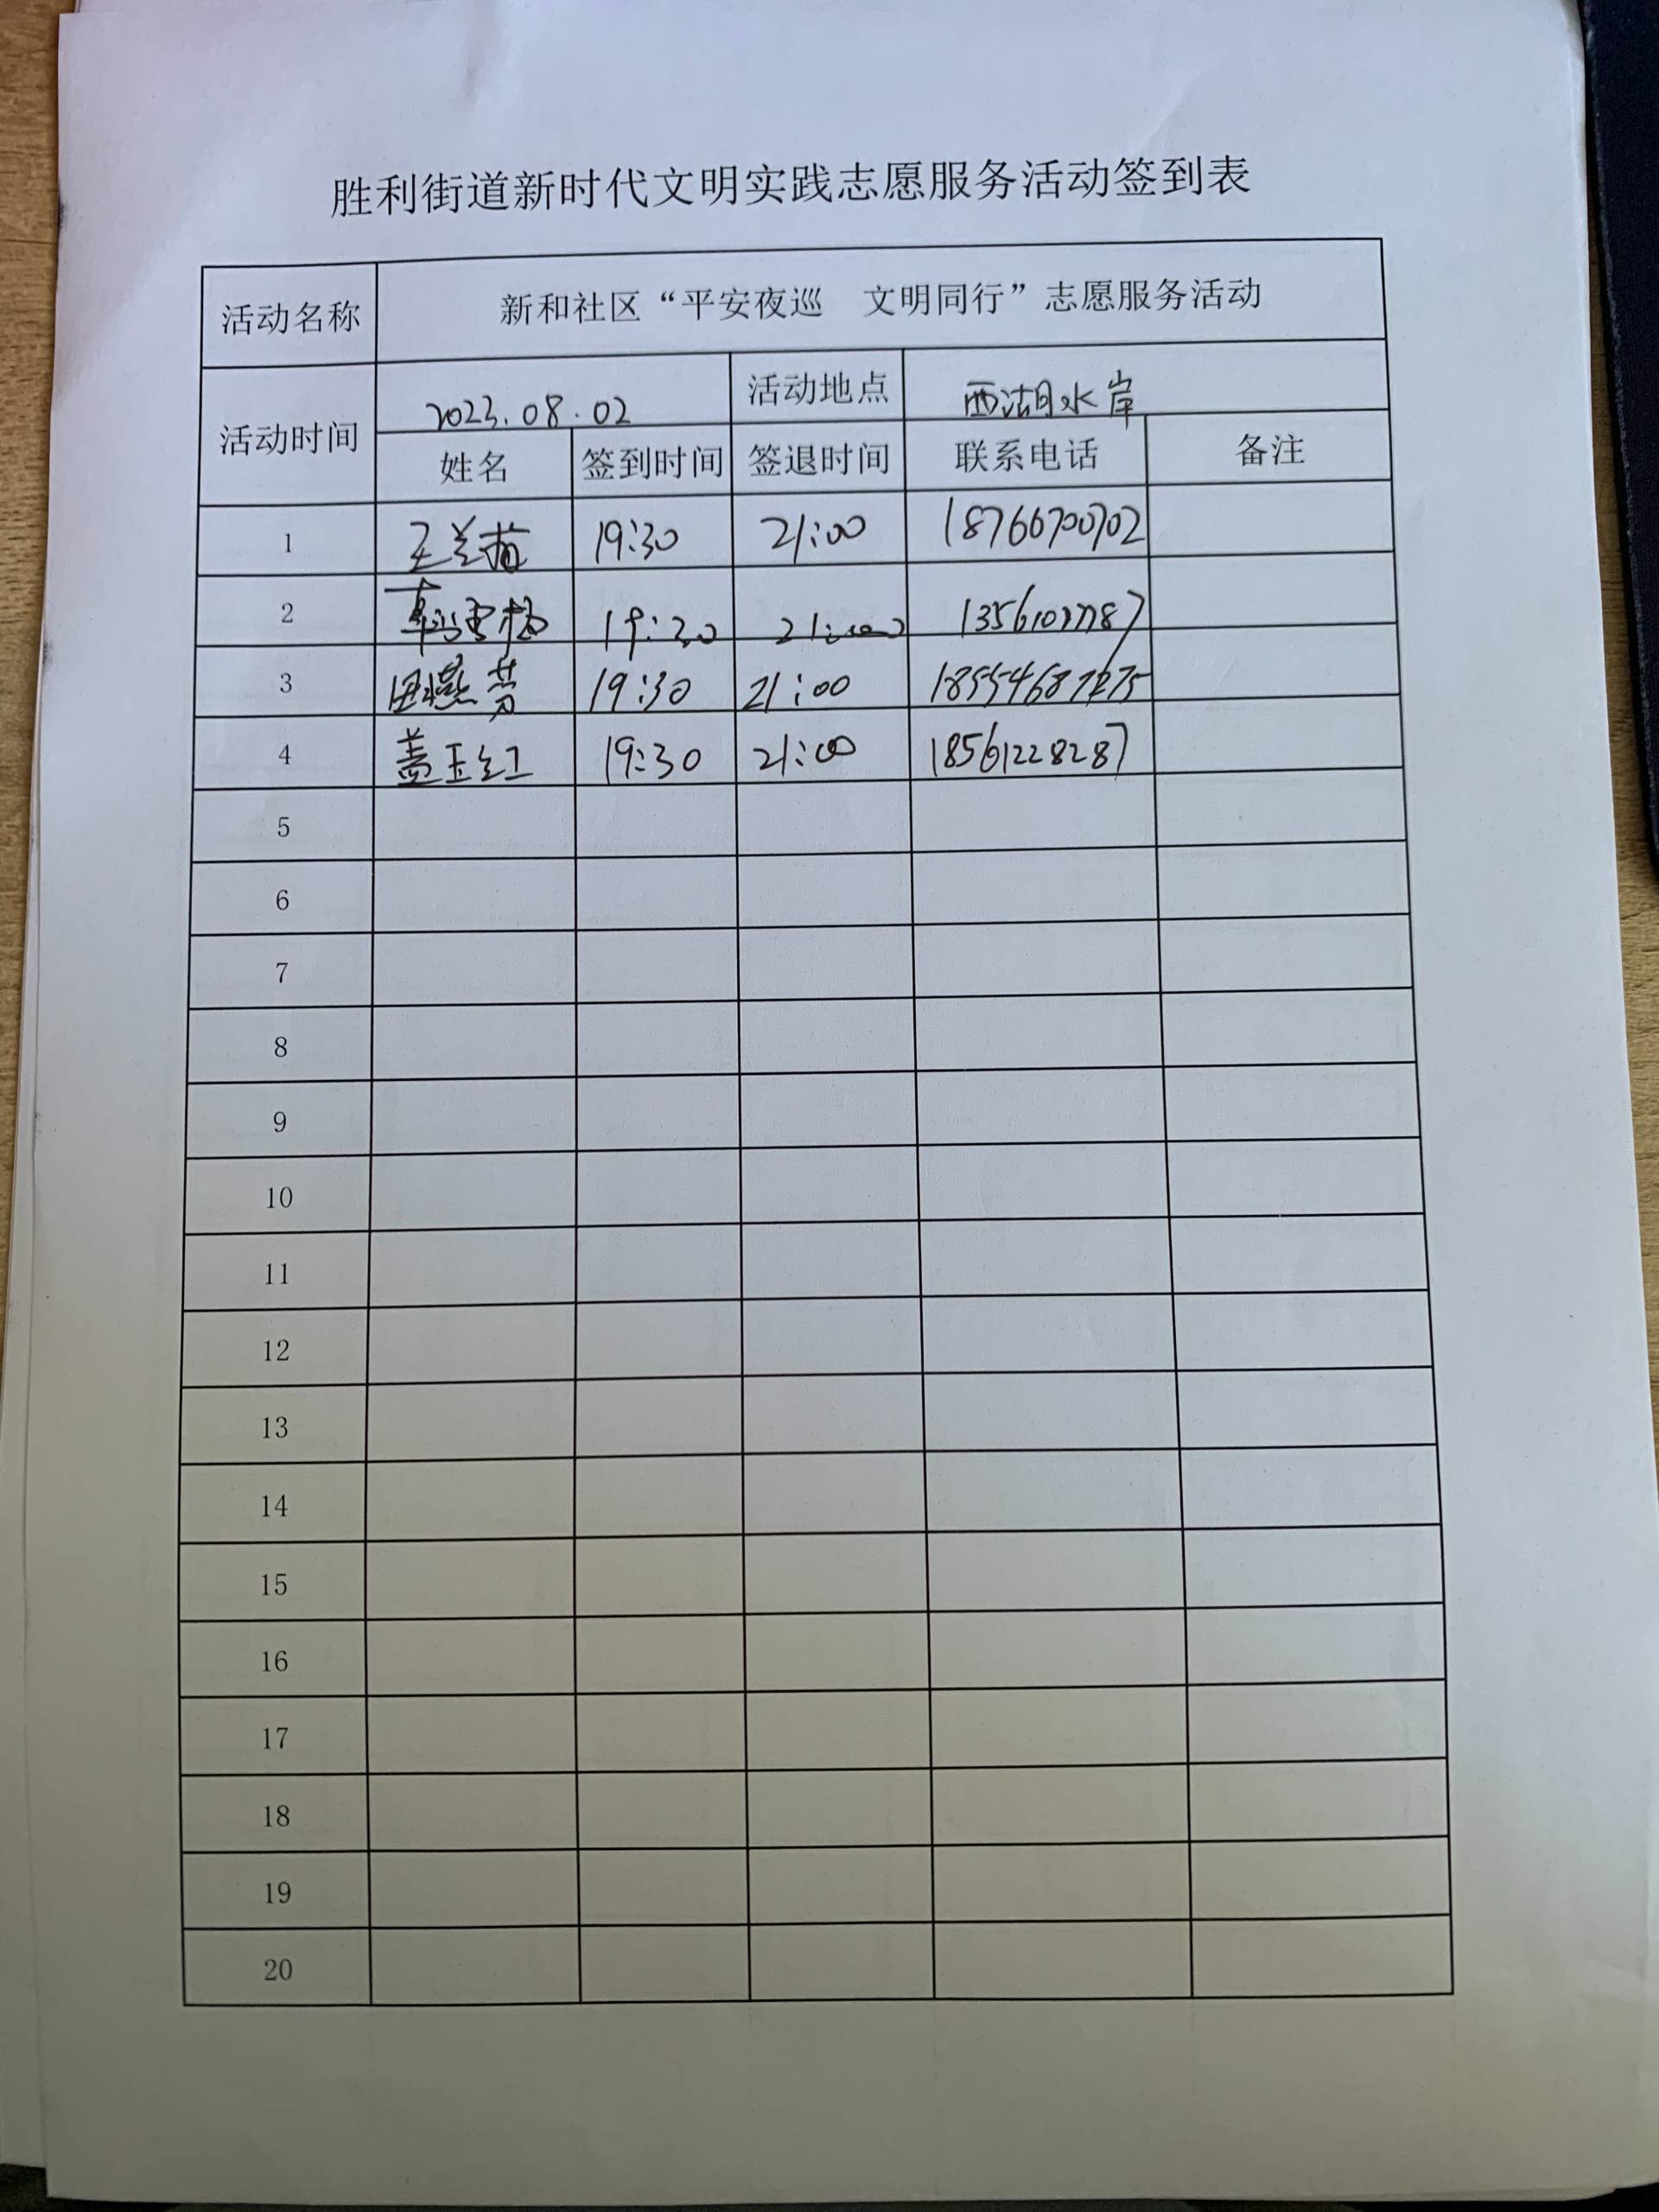 胜利街道新时代文明实践志愿服务活动签到表
活动名称 新和社区“平安夜巡 文明同行”志愿服务活动
活动时间 2023.08.02 活动地点 西湖水岸
姓名 签到时间 签退时间 联系电话 备注
1 王兰菊 19:30 21:00 18766700702
2 19:30 21:00
3 田燕芳 19:30 21:00
4 盖玉红 19:30 21:00 18561228287
5
6
7
8
9
10
11
12
13
14
15
16
17
18
19
20